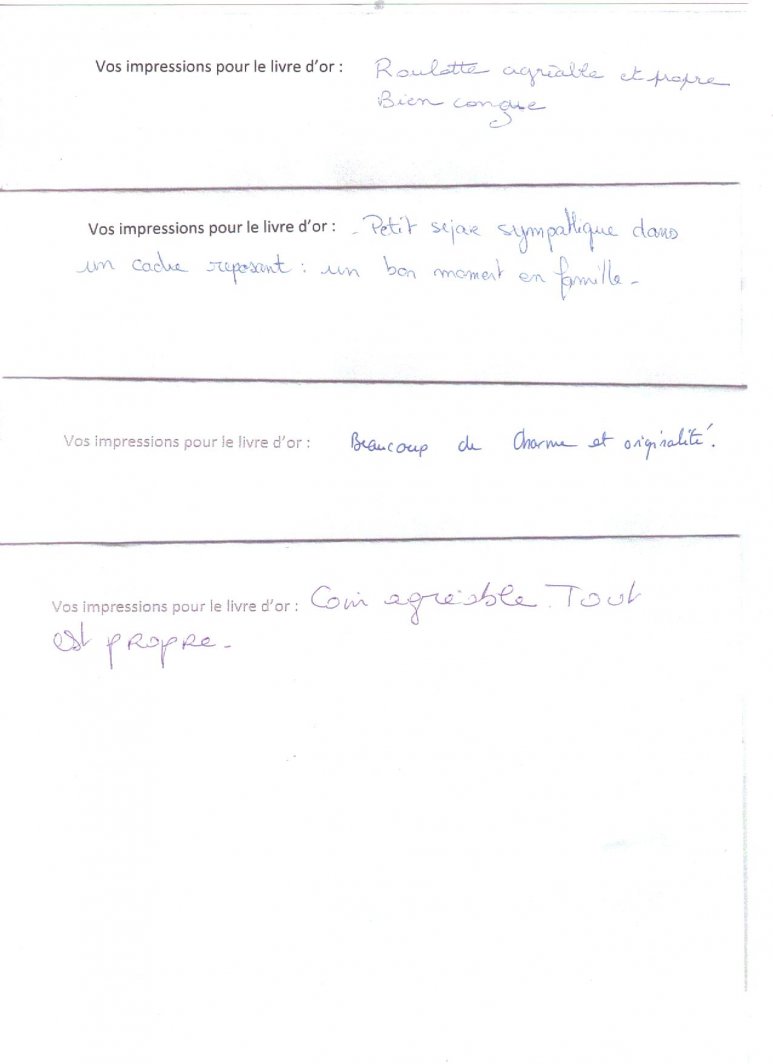 Vos impressions pour le livre d'or : Roulotte agréable et propre
Bien conçue
Vos impressions pour le livre d'or : - Petit séjour sympathique dans
un cadre reposant : un bon moment en famille -
Vos impressions pour le livre d'or : Beaucoup de charme et originalité.
Vos impressions pour le livre d'or : Coin agréable. Tout
est propre -